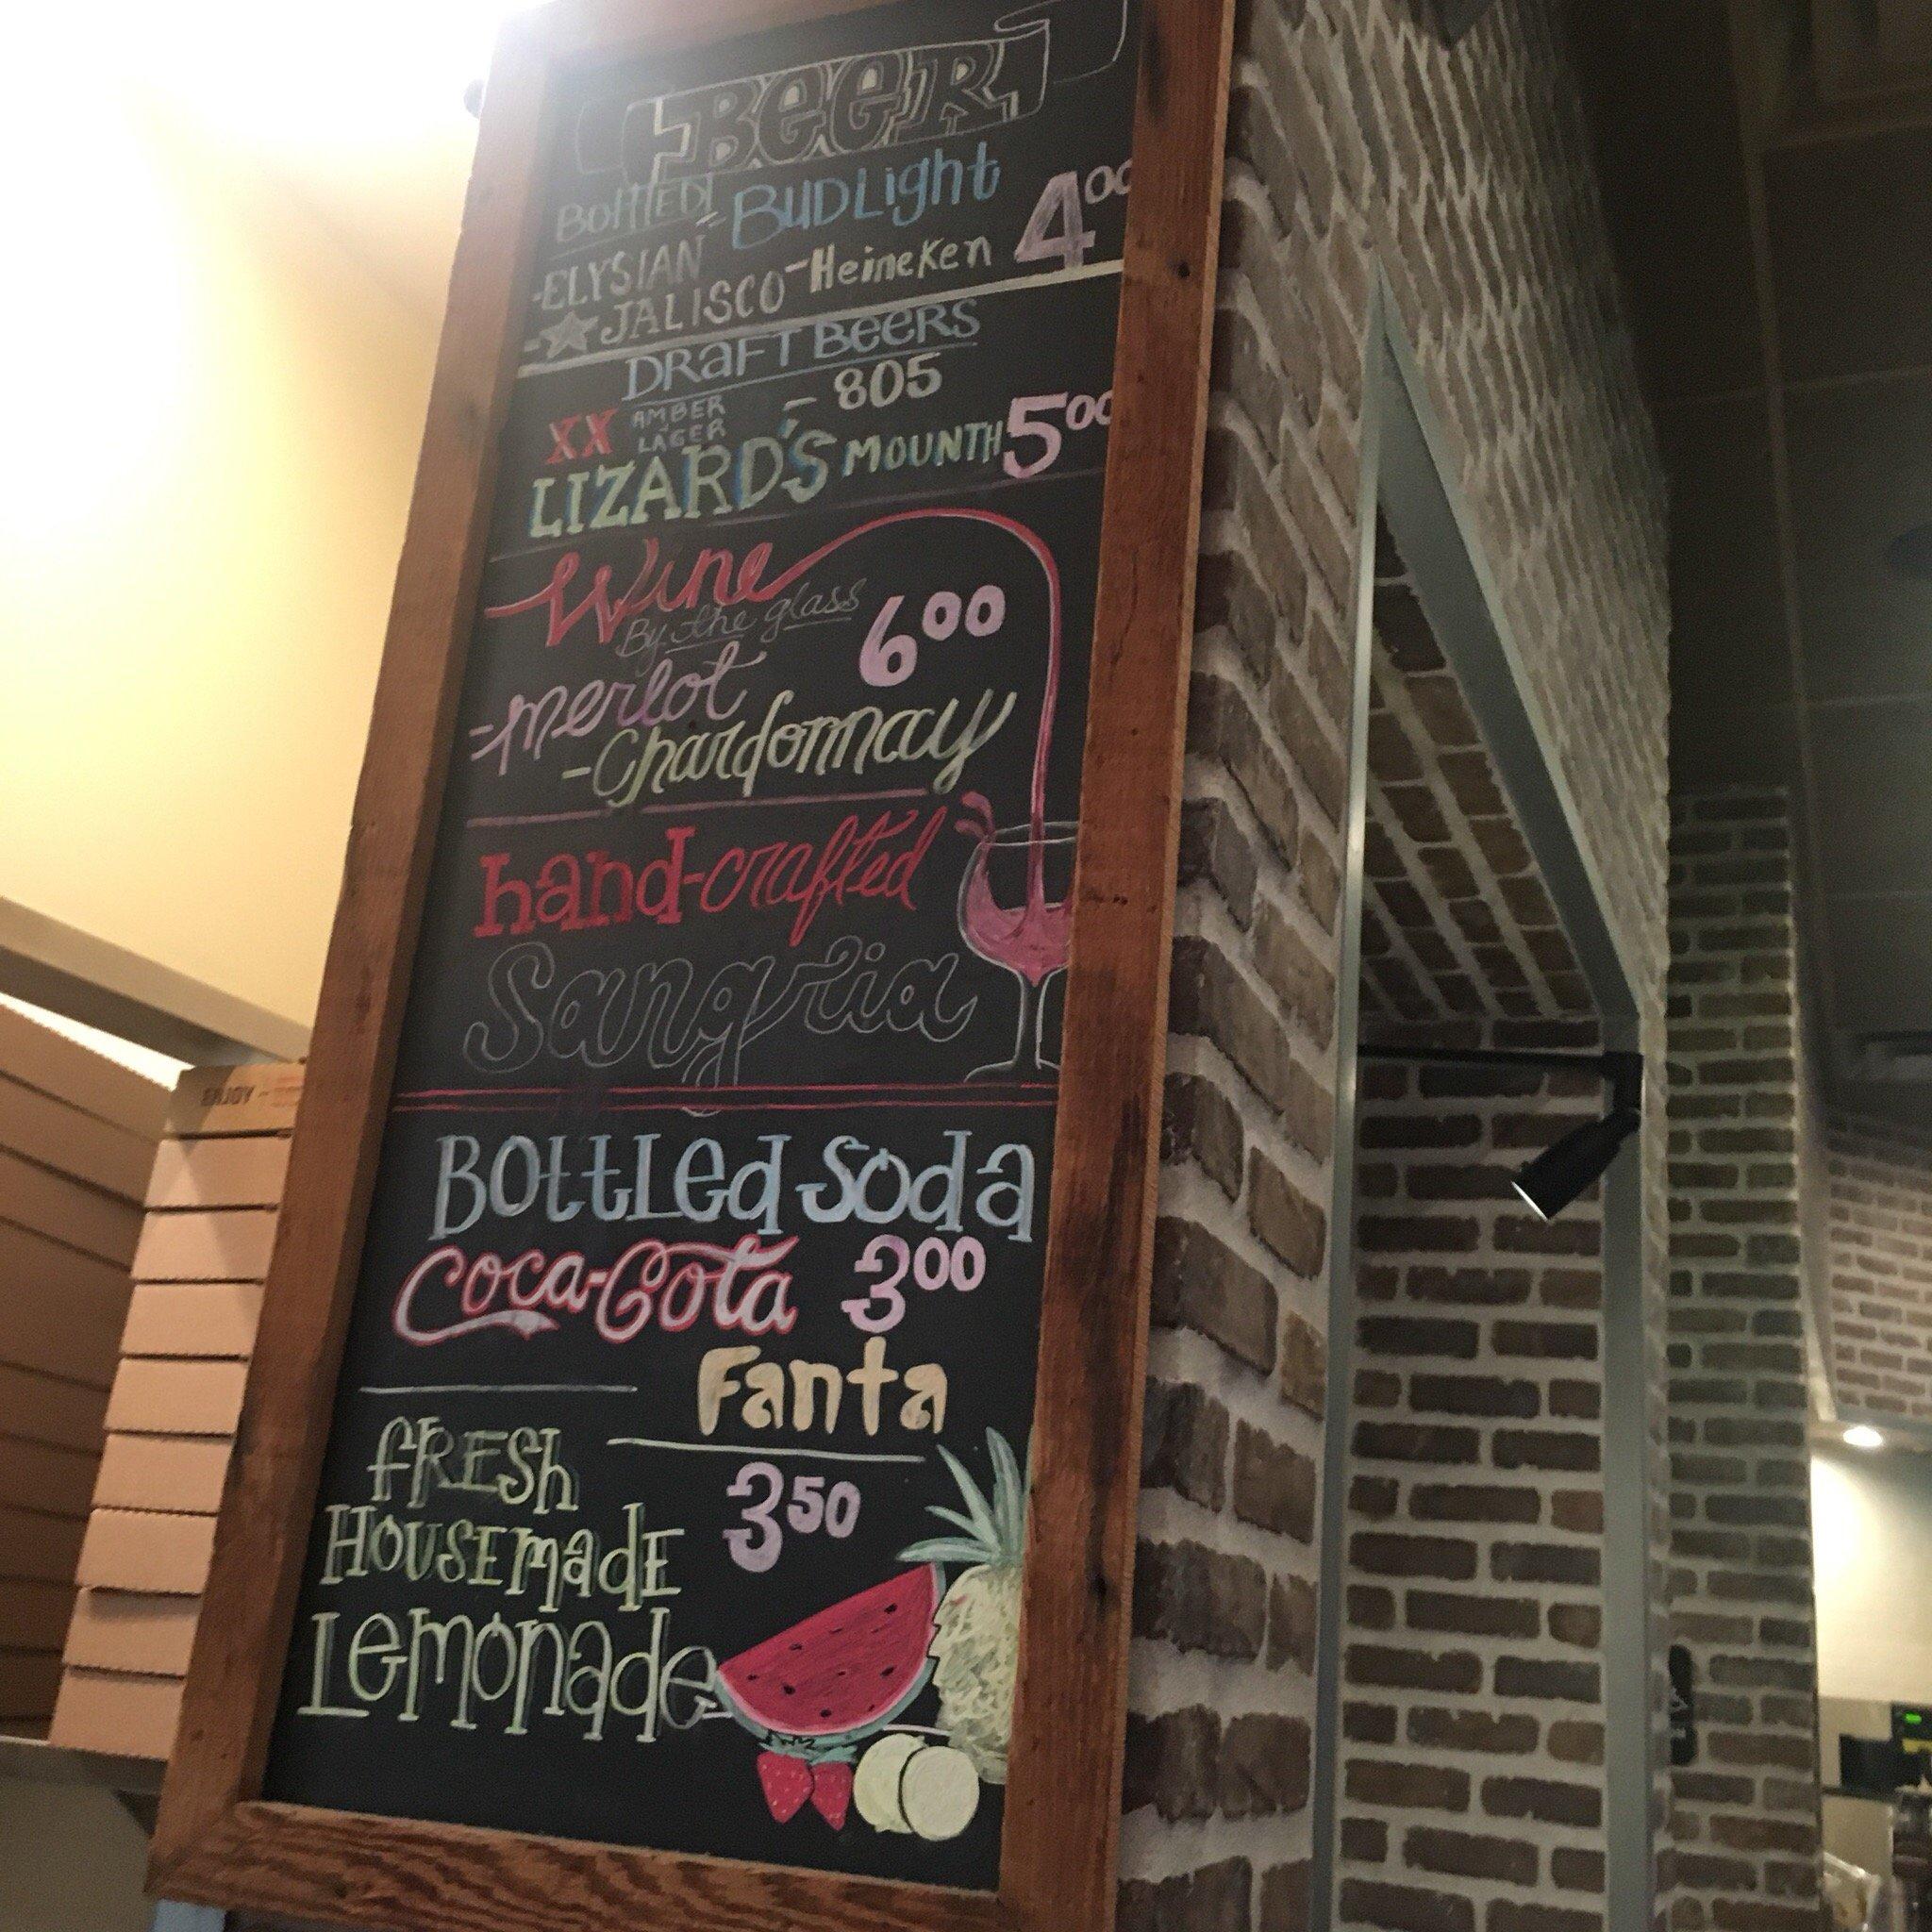 BEER
Bottled BudLight 4⁰⁰
-ELYSIAN -Heineken
-☆JALISCO
DRaFT Beers
XX AMBER LAGER - 805
LIZARD'S MOUNTH 5⁰⁰
Wine
By the glass 6⁰⁰
-merlot
-Chardonnay
hand-crafted
Sangria
Bottled Soda
Coca-Cola 3⁰⁰
Fanta
fRESh 3⁵⁰
HOUSEmadE
Lemonade
ENJOY